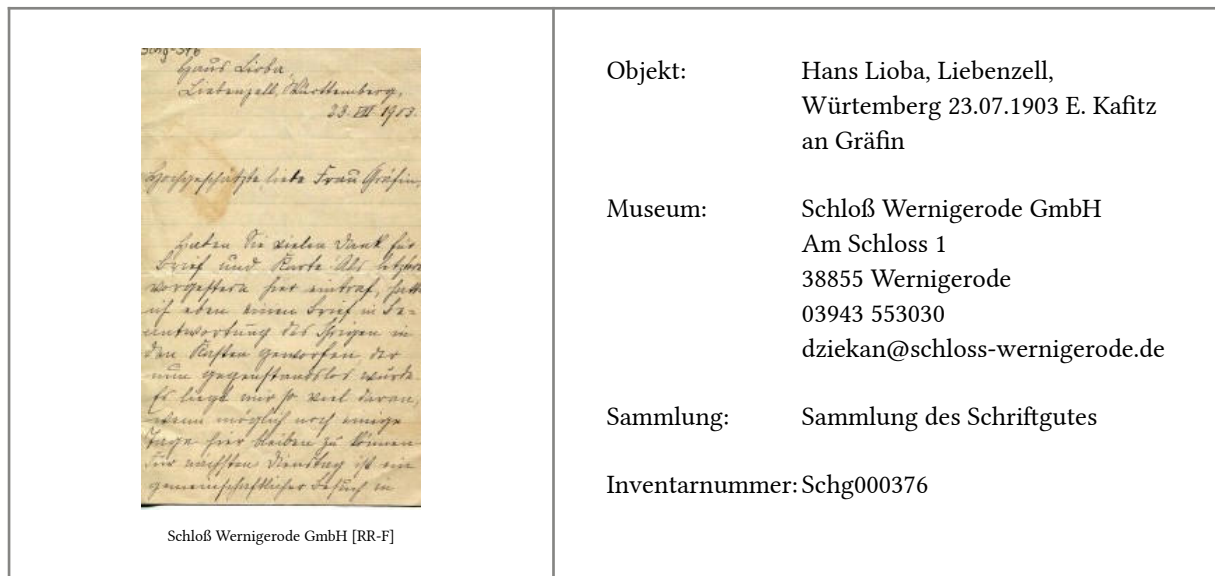 Schg-376
Haus Lioba,
Liebenzell, Württemberg,
23. VII 1903.
Hochgeschätzte liebe Frau Gräfin,
Haben Sie vielen Dank für
Brief und Karte Als letztere
vorgestern hier eintraf, hatte
ich eben einen Brief in Be-
antwortung des Ihrigen in
den Kasten geworfen, der
nun gegenstandslos wurde.
Es liegt mir so viel daran,
wenn möglich noch einige
Tage hier bleiben zu können
Für nächsten Dienstag ist ein
gemeinschaftlicher Besuch in
Schloß Wernigerode GmbH [RR-F]
Objekt: Hans Lioba, Liebenzell,
Würtemberg 23.07.1903 E. Kafitz
an Gräfin
Museum: Schloß Wernigerode GmbH
Am Schloss 1
38855 Wernigerode
03943 553030
dziekan@schloss-wernigerode.de
Sammlung: Sammlung des Schriftgutes
Inventarnummer: Schg000376